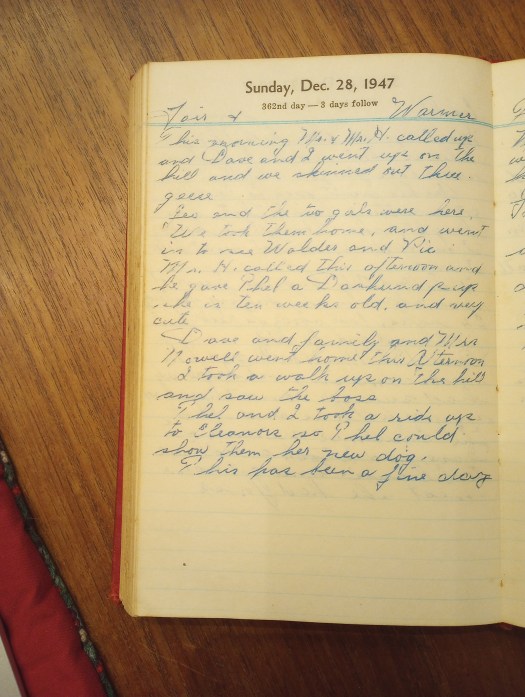 Sunday, Dec. 28, 1947
362nd day — 3 days follow
Fair & Warmer
This morning Mr. & Mrs. H. called up
and Dave and I went up on the
hill and we skinned out three
geese
Les and the to gals were here.
We took them home, and went
in to see Waldes and Vic
Mr. H. called this afternoon and
he gave Phel a Dankund pup
she is ten weeks old, and very
cute
Dave and family and Miss
Nowell went home this afternoon
I took a walk up on the hill
and saw the boss
Phel and I took a ride up
to Eleanors so Phel could
show them her new dog.
This has been a fine day